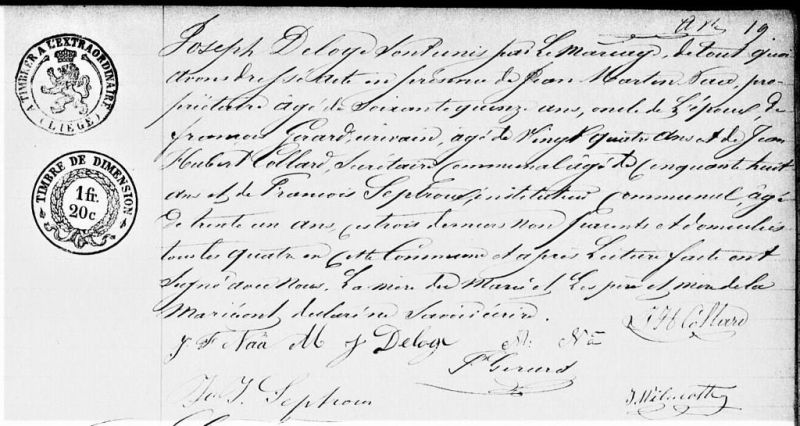 A TIMBRER A L'EXTRAORDINAIRE
(LIÈGE)
TIMBRE DE DIMENSION
1 fr.
20 c
19
Joseph Deloge sont unis par le mariage, de tout quoi
avons dressé acte en présence de Jean Martin, pro-
priétaire âgé de Soixante quinze ans, oncle de l'époux, de
françois Gerard, écrivain, agé de Vingt quatre ans et de Jean
Hubert Collard, Secrétaire Communal agé de Cinquante huit
ans et de Francois Septroux, instituteur Communal, âgé
de trente un ans, ces trois derniers non parents et domiciliés
tous les quatre en cette Commune et après Lecture faite ont
Signé avec Nous, La mère du Marié et Les père et mère de la
Mariée ont déclaré ne Savoir écrire.
J H Collard
M J Deloge
F Gerard
J Septroux
J. Wilmotte